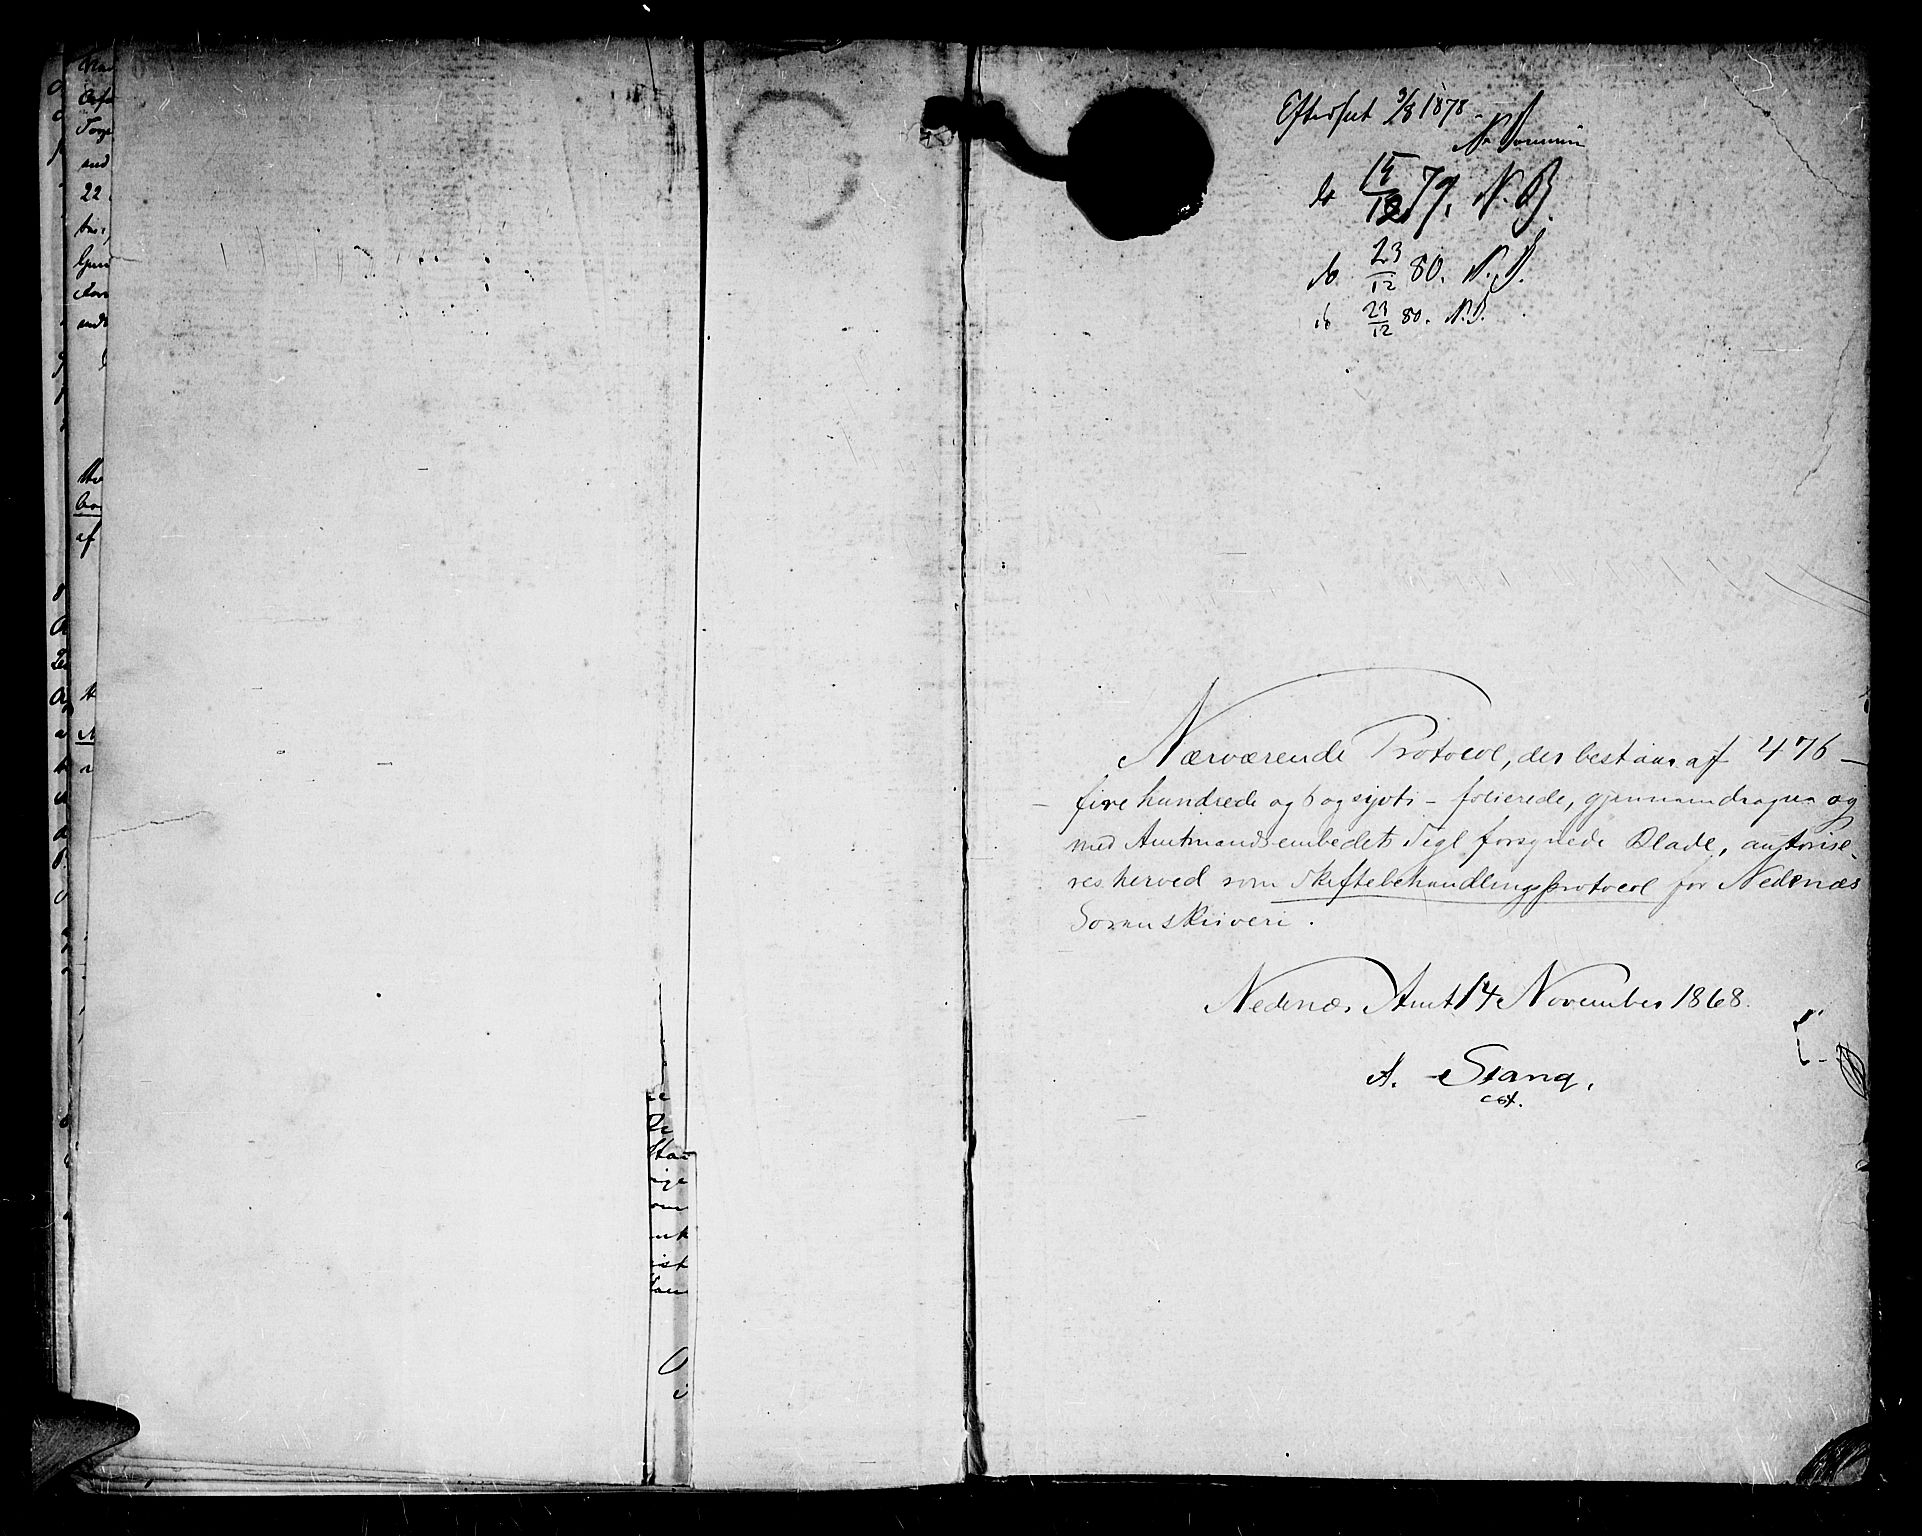 Efterseet 3/8 1878.
do 15/12 79. N. B.
do 23/12 80. N. B.
do 23/12 80. N. B.
Nærværende Protocol, der bestaar af 476 –
– fire hundrede og 6 og sytti – folierede, gjennemdragne og
med Amtmandsembedets Segl forsynede Blade, autorise-
res herved som Skiftebehandlingsprotocol for Nedenæs
Sorenskriveri.
Nedenæs Amt 14 November 1868.
A. Stang.
cst.
af
22